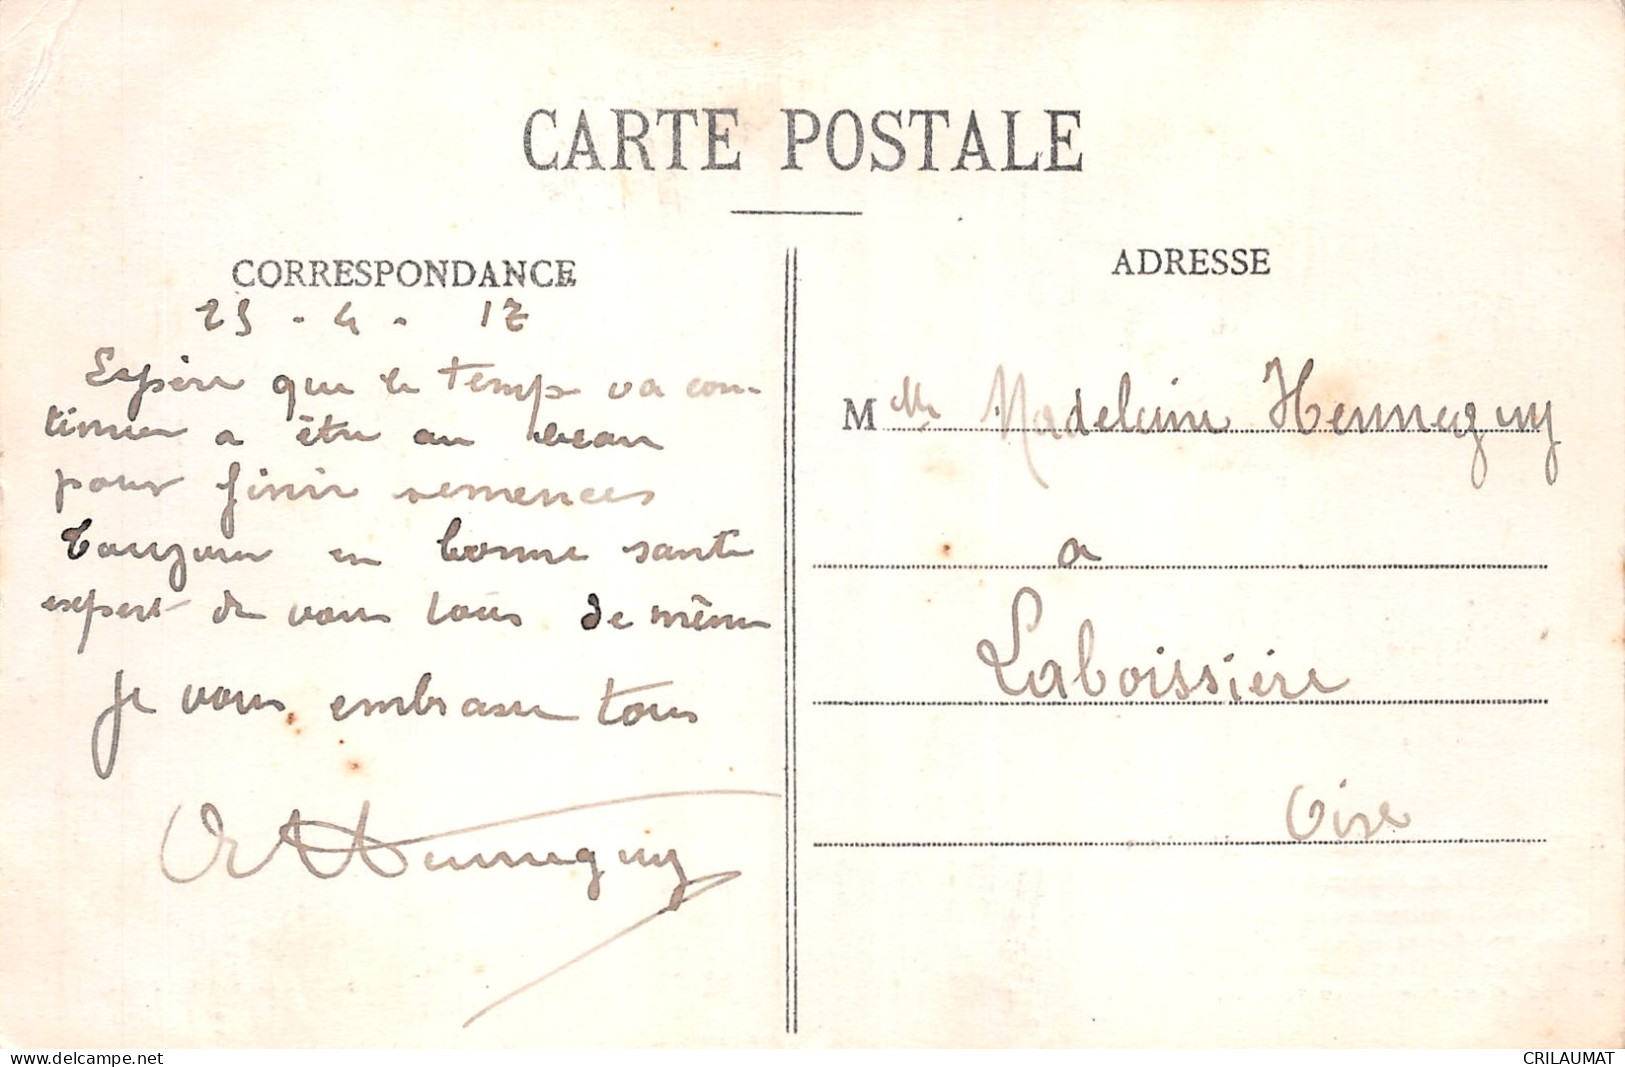 CARTE POSTALE
CORRESPONDANCE
23 - 4 - 17
Espère que le temps va con-
tinuer a être au beau
pour finir semences
Toujours en bonne santé
espert de vous tous de même
Je vous embrasse tous
Henneguy
ADRESSE
Mlle Madeleine Henneguy
a
Laboissière
Oise
CRILAUMAT